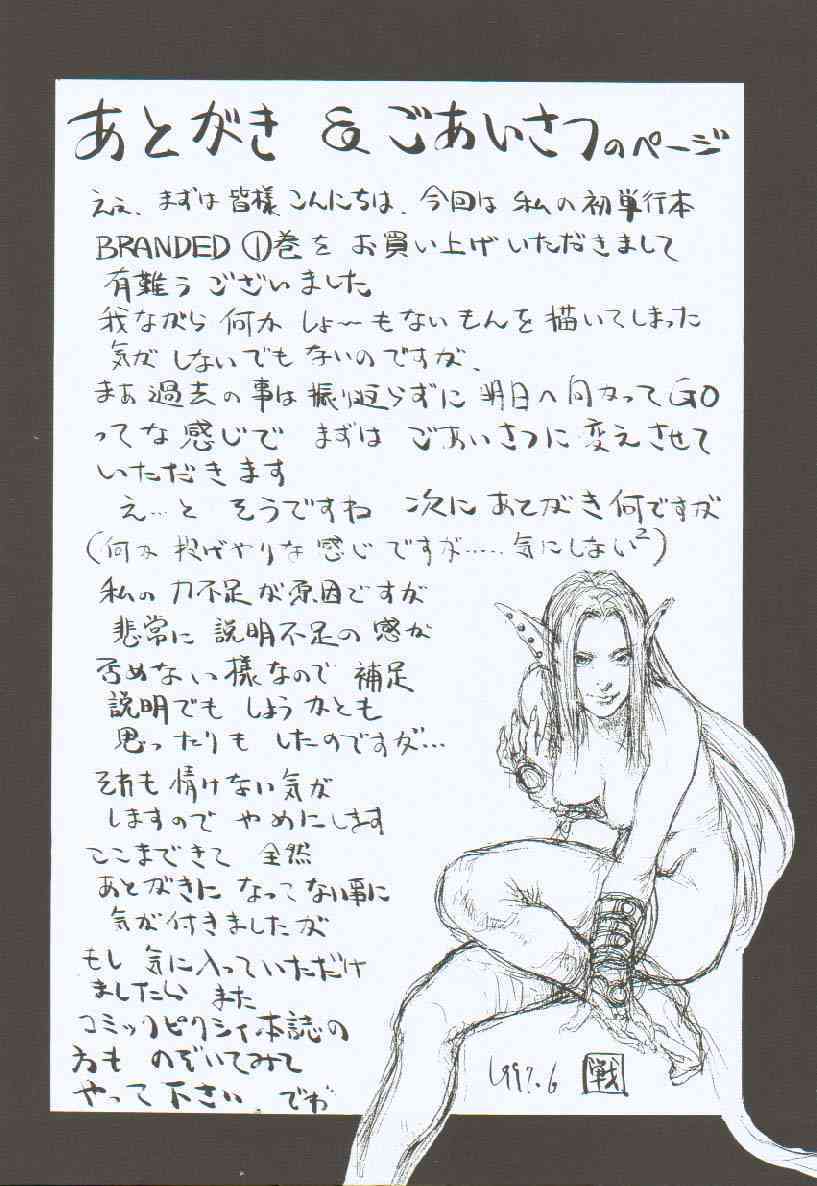 あとがき & ごあいさつのページ
ええ、まずは皆様こんにちは、今回は私の初単行本
BRANDED ①巻をお買い上げいただきまして
有難うございました
我ながら何かしょ〜もないもんを描いてしまった
気がしないでもないのですが、
まあ過去の事は振り返らずに明日へ向かってGO
ってな感じで まずは ごあいさつに変えさせて
いただきます
え…と そうですね 次にあとがき何ですが
(何か投げやりな感じですが……気にしない²)
私の力不足が原因ですが
悲常に説明不足の感が
否めない様なので補足
説明でもしようかとも
思ったりもしたのですが…
それも情けない気が
しますので やめにします
ここまできて 全然
あとがきになってない事に
気が付きましたが
もし気に入っていただけ
ましたら また
コミックピクシィ本誌の
方ものぞいてみて
やって下さい でわ
199?.6 戦